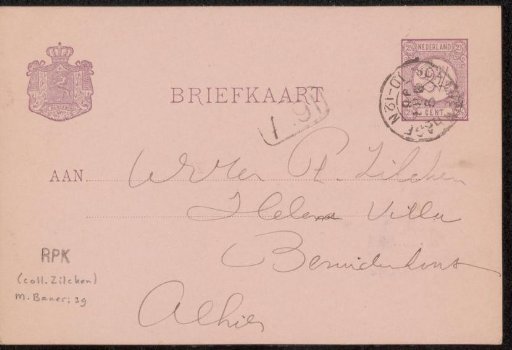 NEDERLAND
2½ 2½
CENT
BRIEFKAART
AAN
Ph. Zilcken
Helena Villa
Bezuidenhout
Alhier
RPK
(coll. Zilcken)
M. Bauer; 39